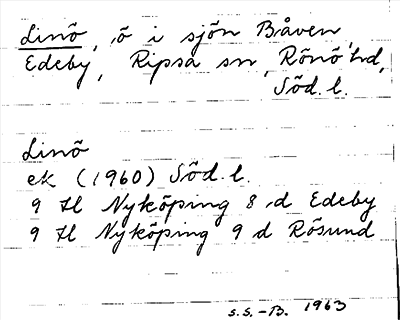 Linö, ö i sjön Båven,
Edeby, Ripsa sn, Rönö hd,
Söd. l.
Linö
ek (1960) Söd. l.
9 H Nyköping 8 d Edeby
9 H Nyköping 9 d Rösund
S.S.-B. 1963